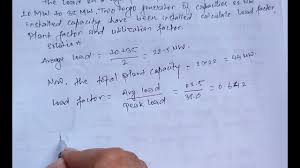 The load on a
10 MW to 35 MW. Two generator of capacities 22 MW
installed capacity have been installed calculate load factor
plant factor and utilization factor.
Solution
Average load = 10+35 / 2 = 22.5 MW.
Now, the total plant capacity = 2×22 = 44 MW
Load factor = Avg. load / Peak load = / 35.0 = 0.642